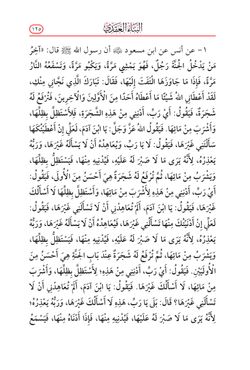 البناء العقدي
١٢٥
١- عن أنس عن ابن مسعود ﵁ أن رسول الله ﷺ قال: «آخِرُ
مَنْ يَدْخُلُ الْجَنَّةَ رَجُلٌ، فَهْوَ يَمْشِي مَرَّةً، وَيَكْبُو مَرَّةً، وَتَسْفَعُهُ النَّارُ
مَرَّةً، فَإِذَا مَا جَاوَزَهَا الْتَفَتَ إِلَيْهَا، فَقَالَ: تَبَارَكَ الَّذِي نَجَّانِي مِنْكِ،
لَقَدْ أَعْطَانِي اللهُ شَيْئًا مَا أَعْطَاهُ أَحَدًا مِنَ الْأَوَّلِينَ وَالْآخِرِينَ، فَتُرْفَعُ لَهُ
شَجَرَةٌ، فَيَقُولُ: أَيْ رَبِّ، أَدْنِنِي مِنْ هَذِهِ الشَّجَرَةِ، فَلِأَسْتَظِلَّ بِظِلِّهَا،
وَأَشْرَبَ مِنْ مَائِهَا، فَيَقُولُ اللهُ عَزَّ وَجَلَّ: يَا ابْنَ آدَمَ، لَعَلِّي إِنْ أَعْطَيْتُكَهَا
سَأَلْتَنِي غَيْرَهَا، فَيَقُولُ: لَا يَا رَبِّ، وَيُعَاهِدُهُ أَنْ لَا يَسْأَلَهُ غَيْرَهَا، وَرَبُّهُ
يَعْذِرُهُ، لِأَنَّهُ يَرَى مَا لَا صَبْرَ لَهُ عَلَيْهِ، فَيُدْنِيهِ مِنْهَا، فَيَسْتَظِلُّ بِظِلِّهَا،
وَيَشْرَبُ مِنْ مَائِهَا، ثُمَّ تُرْفَعُ لَهُ شَجَرَةٌ هِيَ أَحْسَنُ مِنَ الْأُولَى، فَيَقُولُ:
أَيْ رَبِّ، أَدْنِنِي مِنْ هَذِهِ لِأَشْرَبَ مِنْ مَائِهَا، وَأَسْتَظِلَّ بِظِلِّهَا لَا أَسْأَلُكَ
غَيْرَهَا، فَيَقُولُ: يَا ابْنَ آدَمَ، أَلَمْ تُعَاهِدْنِي أَنْ لَا تَسْأَلَنِي غَيْرَهَا، فَيَقُولُ:
لَعَلِّي إِنْ أَدْنَيْتُكَ مِنْهَا تَسْأَلُنِي غَيْرَهَا، فَيُعَاهِدُهُ أَنْ لَا يَسْأَلَهُ غَيْرَهَا، وَرَبُّهُ
يَعْذِرُهُ، لِأَنَّهُ يَرَى مَا لَا صَبْرَ لَهُ عَلَيْهِ، فَيُدْنِيهِ مِنْهَا، فَيَسْتَظِلُّ بِظِلِّهَا،
وَيَشْرَبُ مِنْ مَائِهَا، ثُمَّ تُرْفَعُ لَهُ شَجَرَةٌ عِنْدَ بَابِ الْجَنَّةِ هِيَ أَحْسَنُ مِنَ
الْأُولَيَيْنِ. فَيَقُولُ: أَيْ رَبِّ، أَدْنِنِي مِنْ هَذِهِ؛ لِأَسْتَظِلَّ بِظِلِّهَا، وَأَشْرَبَ
مِنْ مَائِهَا، لَا أَسْأَلُكَ غَيْرَهَا، فَيَقُولُ: يَا ابْنَ آدَمَ، أَلَمْ تُعَاهِدْنِي أَنْ لَا
تَسْأَلَنِي غَيْرَهَا؟ قَالَ: بَلَى يَا رَبِّ، هَذِهِ لَا أَسْأَلُكَ غَيْرَهَا، وَرَبُّهُ يَعْذِرُهُ؛
لِأَنَّهُ يَرَى مَا لَا صَبْرَ لَهُ عَلَيْهَا، فَيُدْنِيهِ مِنْهَا، فَإِذَا أَدْنَاهُ مِنْهَا، فَيَسْمَعُ